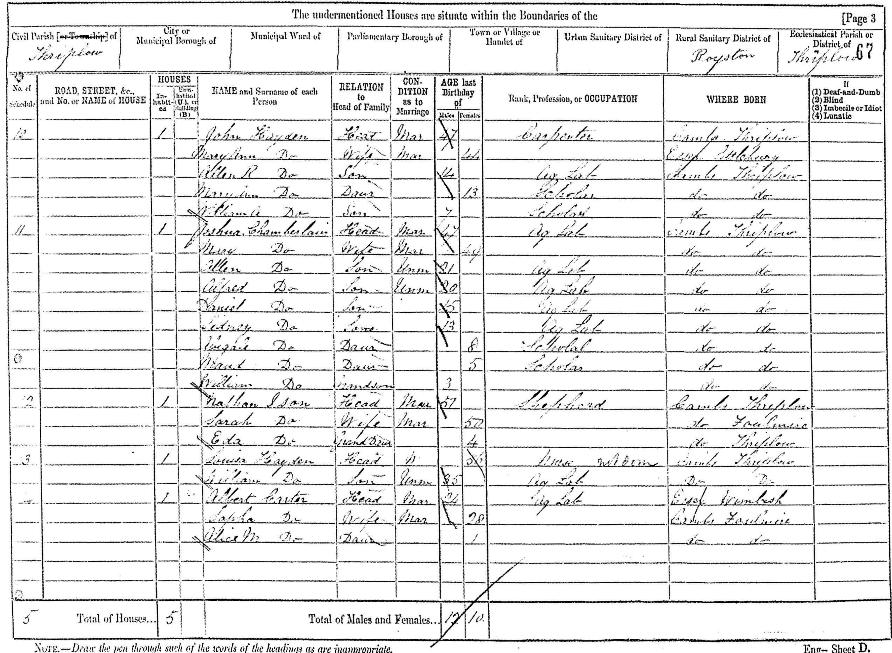 The undermentioned Houses are situate within the Boundaries of the [Page 3
Civil Parish [or Township] of
Thriplow
City or Municipal Borough of
Municipal Ward of
Parliamentary Borough of
Town or Village or Hamlet of
Urban Sanitary District of
Rural Sanitary District of
Royston
Ecclesiastical Parish or District of
Thriplow 67
No. of Schedule
ROAD, STREET, &c., and No. or NAME of HOUSE
HOUSES
In-habit-ed
(B)
NAME and Surname of each Person
RELATION to Head of Family
CON-DITION as to Marriage
AGE last Birthday of
Males Females
Rank, Profession, or OCCUPATION
WHERE BORN
If
(1) Deaf-and-Dumb
(2) Blind
(3) Imbecile or Idiot
(4) Lunatic
1 John Hayden Head Mar 47 Carpenter Cambs Thriplow
Mary Ann Do Wife Mar 44 Essex
Allen R Do Son 14 Ag Lab Cambs Thriplow
Mary Ann Do Daur 13 Scholar do do
William A Do Son 7 Scholar do do
11 1 Joshua Chamberlain Head Mar 47 Ag Lab Cambs Thriplow
Mary Do Wife Mar 49 do do
Allen Do Son Unm 21 Ag Lab do do
Alfred Do Son Unm 20 Ag Lab do do
Daniel Do Son 15 Ag Lab do do
Sidney Do Son 13 Ag Lab do do
Abigail Do Daur 8 Scholar do do
Maud Do Daur 5 Scholar do do
William Do Grandson 3 do do
12 1 Nathan Ison Head Mar 51 Shepherd Cambs Thriplow
Sarah Do Wife Mar 50 do Foulmire
Eda Do Grand Daur 4 do Thriplow
3 1 Louisa Hayden Head W Nurse Cambs Thriplow
William Do Son Unm 25 Ag Lab Do Do
1 Albert Carter Head Mar 24 Ag Lab Essex Wimbish
Sapha Do Wife Mar 28 Cambs Foulmire
Alice M Do Daur 1 do do
5 Total of Houses... 5 Total of Males and Females... 12 10
NOTE.—Draw the pen through such of the words of the headings as are inappropriate. Eng— Sheet D.